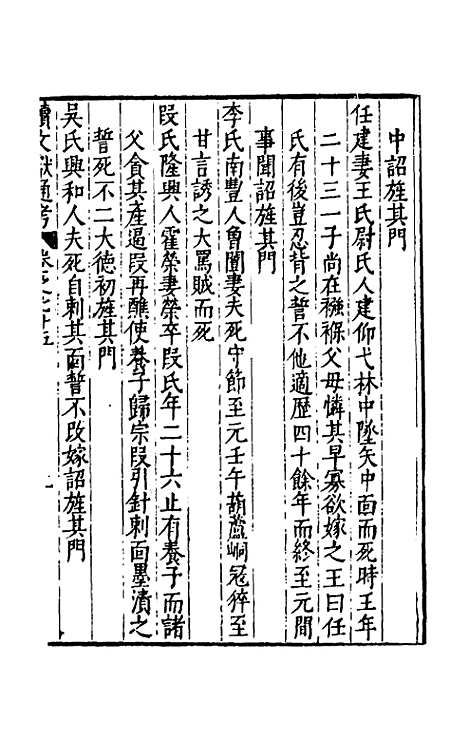 中詔旌其門
任建妻王氏尉氏人建仰弋林中墜矢中面而死時王年
二十三一子尚在襁褓父母憐其早寡欲嫁之王曰任
氏有後豈忍背之誓不他適歷四十餘年而終至元間
事聞詔旌其門
李氏南豐人魯闓妻夫死守節至元壬午葫蘆峒寇猝至
甘言誘之大罵賊而死
段氏隆興人霍榮妻榮卒段氏年二十六止有養子而諸
父貪其產逼段再醮使養子歸宗段引針刺面墨漬之
誓死不二大德初旌其門
吳氏興和人夫死自刺其面誓不改嫁詔旌其門
續文獻通考 卷之七十五